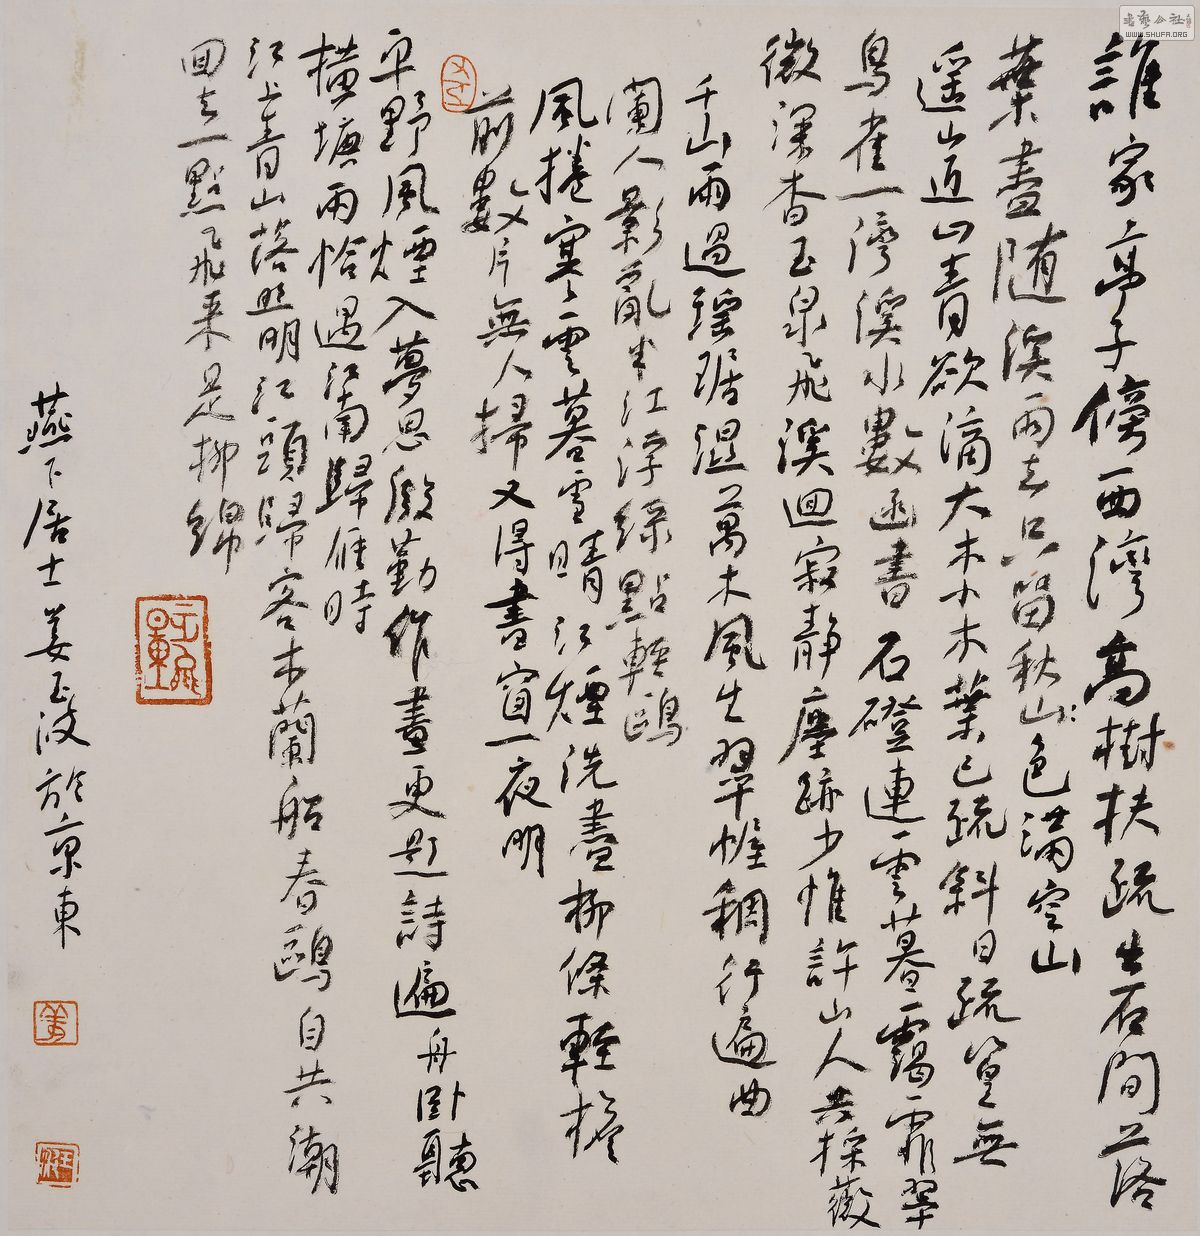 誰家亭子傍西灣高樹扶疏出石間落
葉盡随溪雨去只留秋山色滿空山
遥山近山青欲滴大木小木葉已疏斜日疏篁無
鳥雀一灣溪水數函書 石磴連雲暮靄霏翠
微深杳玉泉飛溪迴寂靜塵跡少惟許山人共採薇
千山雨過瑶琚濕萬木風生翠幄稠行遍曲
闌人影亂半江浮綠點輕鷗
風捲寒雲暮雪晴江煙洗盡柳條輕檐
前數片無人掃又得書窗一夜明
平野風煙入夢思殷勤作畫更題詩遍舟卧聽
橫塘雨恰遇江南歸雁時
江上青山落照明江頭歸客木蘭船春鷗自共潮
回去一點飛来是柳綿
燕下居士姜玉波於京東
書藝公社
WWW.SHUFA.ORG